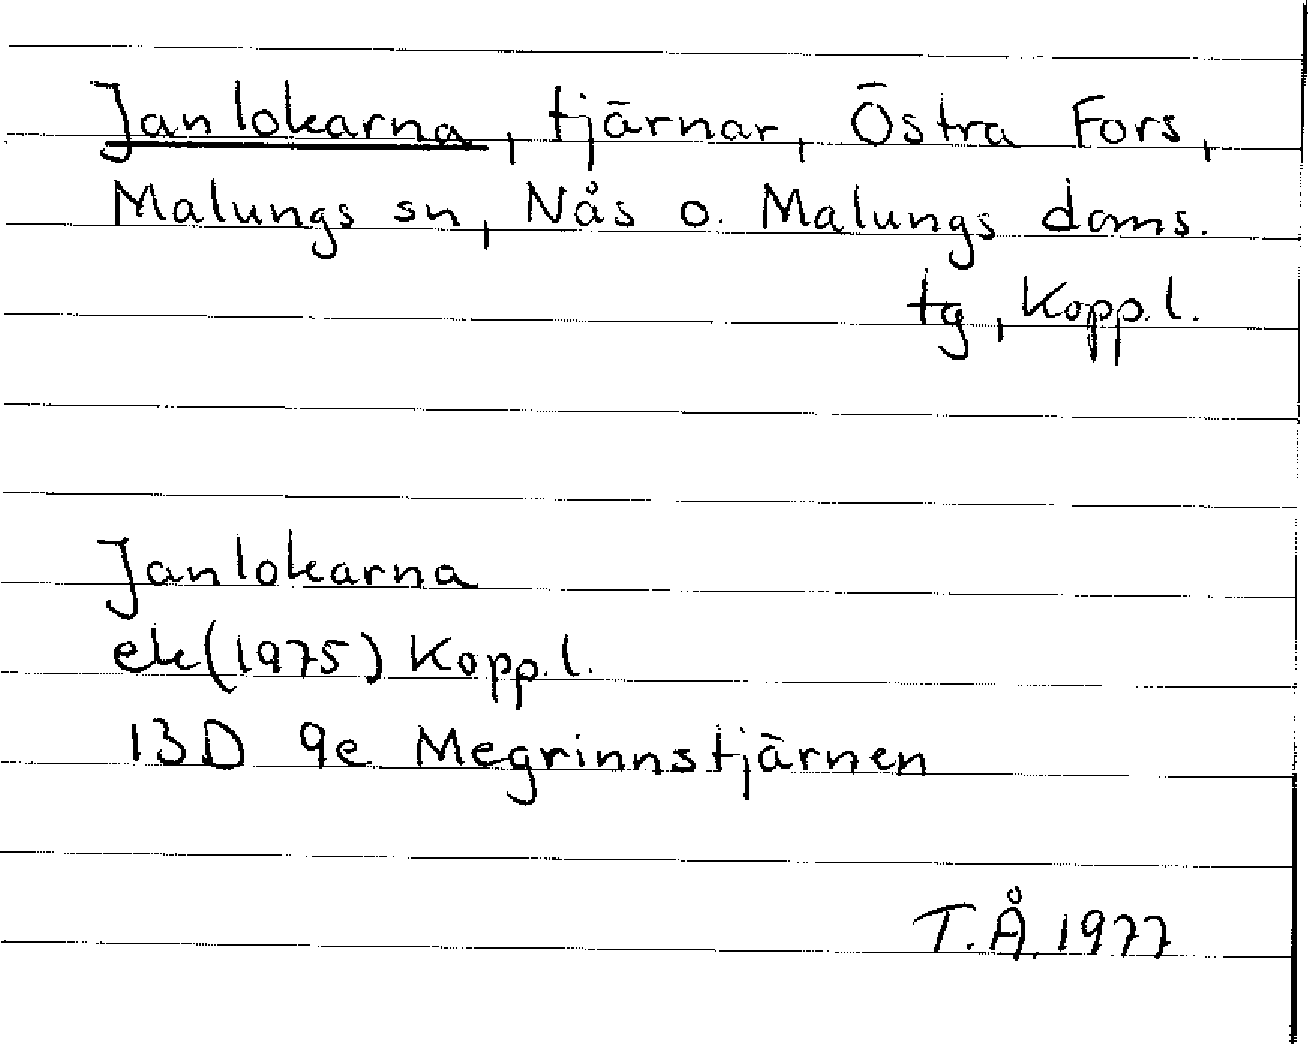 Janlokarna, tjärnar, Östra Fors,
Malungs sn, Nås o. Malungs doms.
tg, Kopp.l.
Janlokarna
ek(1975) Kopp.l.
13D 9e Megrinnstjärnen
T.Å. 1977